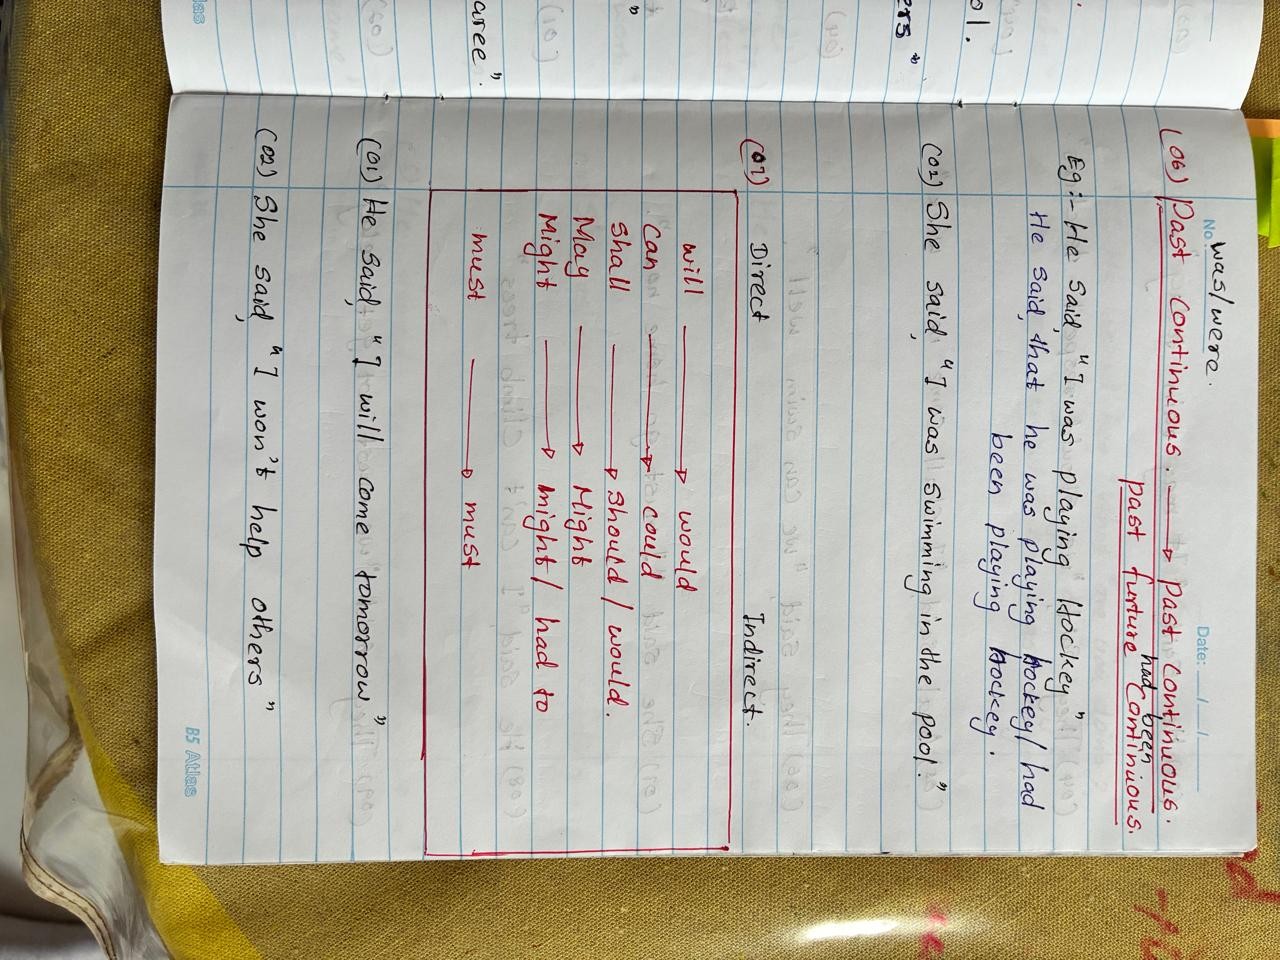 aree".
"
ers"
ol.
No was/were.
Date: / /
(06) Past continuous. → Past continuous.
had been
Past furture Continuous.
Eg:- He said, "I was playing Hockey"
He said, that he was playing hockey/ had
been playing hockey.
(02) She said, "I was Swimming in the pool."
(07) Direct Indirect.
will → would
can → could
Shall → Should / would.
May → Might
Might → might / had to
must → must
(01) He said, "I will come tomorrow"
(02) She said, "I won't help others"
B5 Atlas